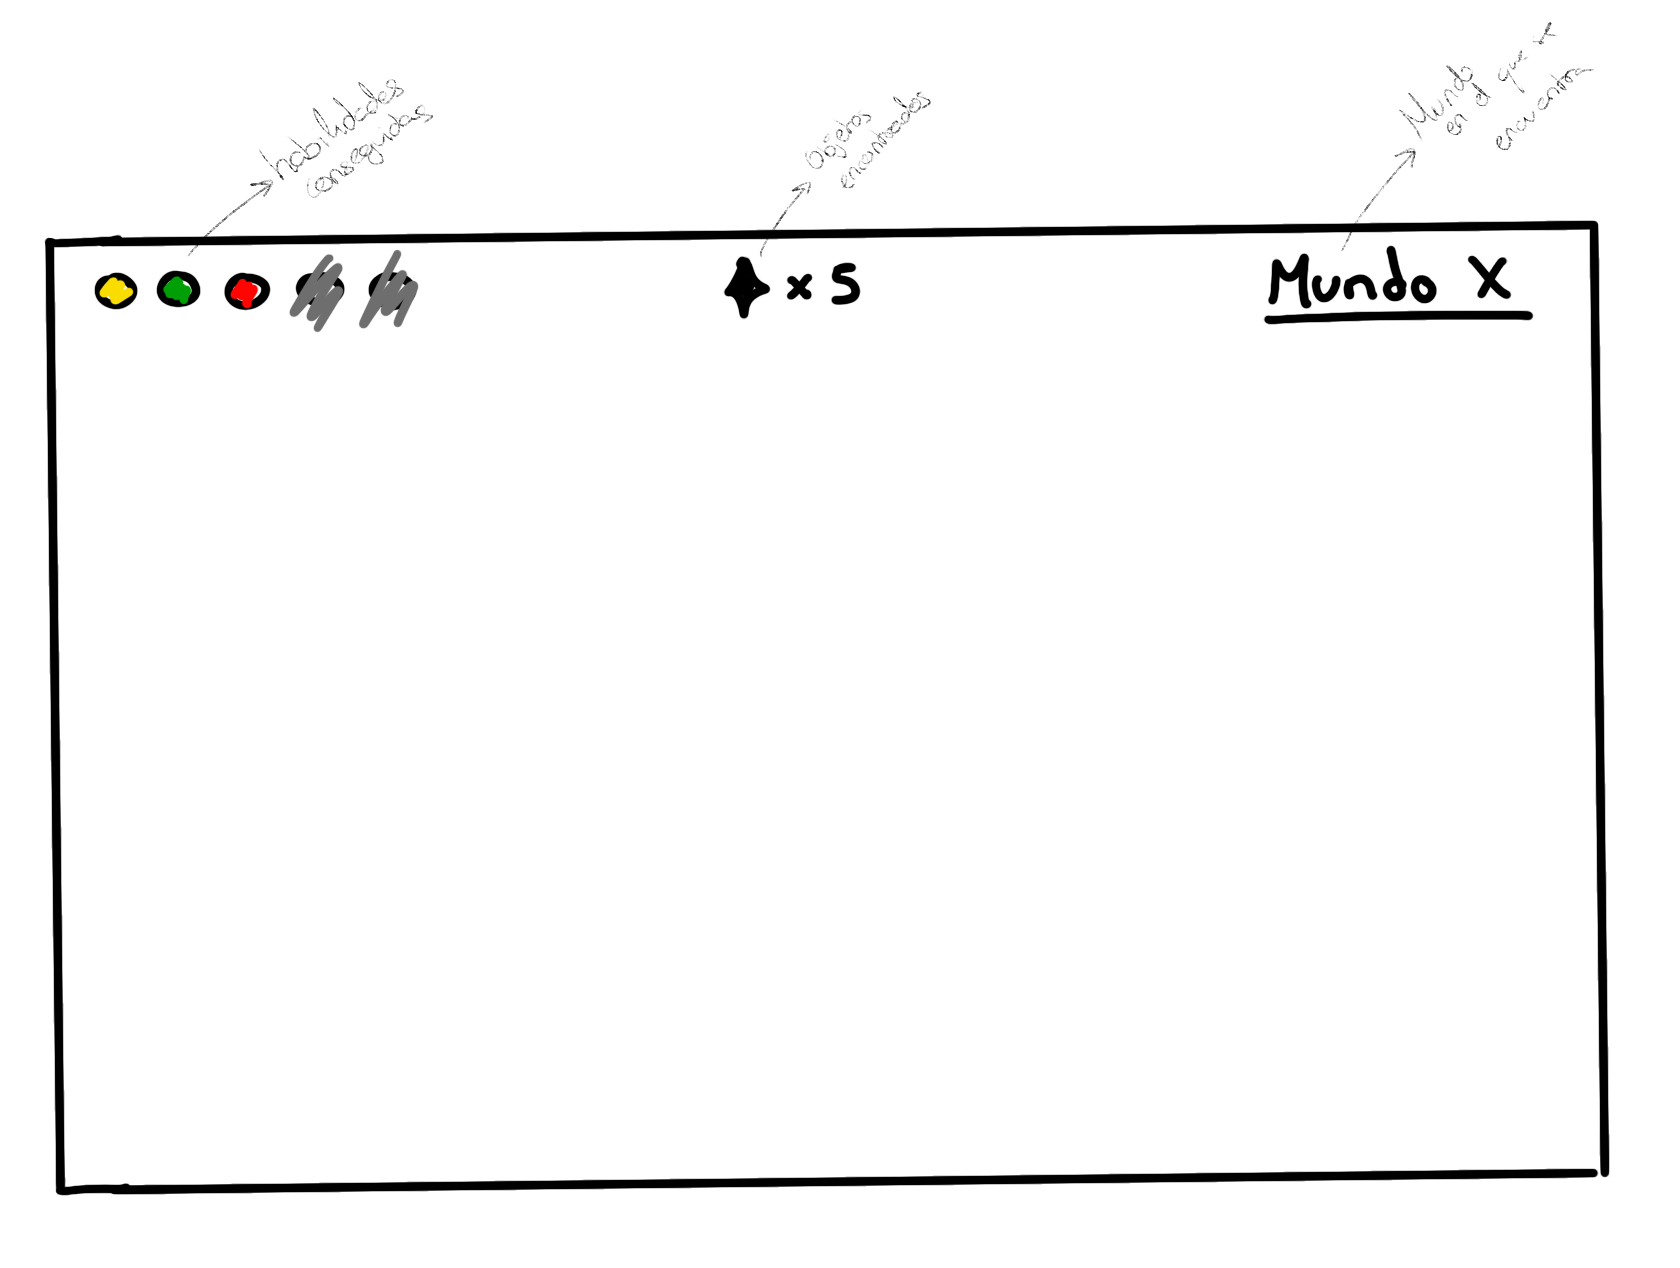 habilidades
conseguidas
Objetos
encontrados
Mundo
en el que se
encuentra
x 5
Mundo X